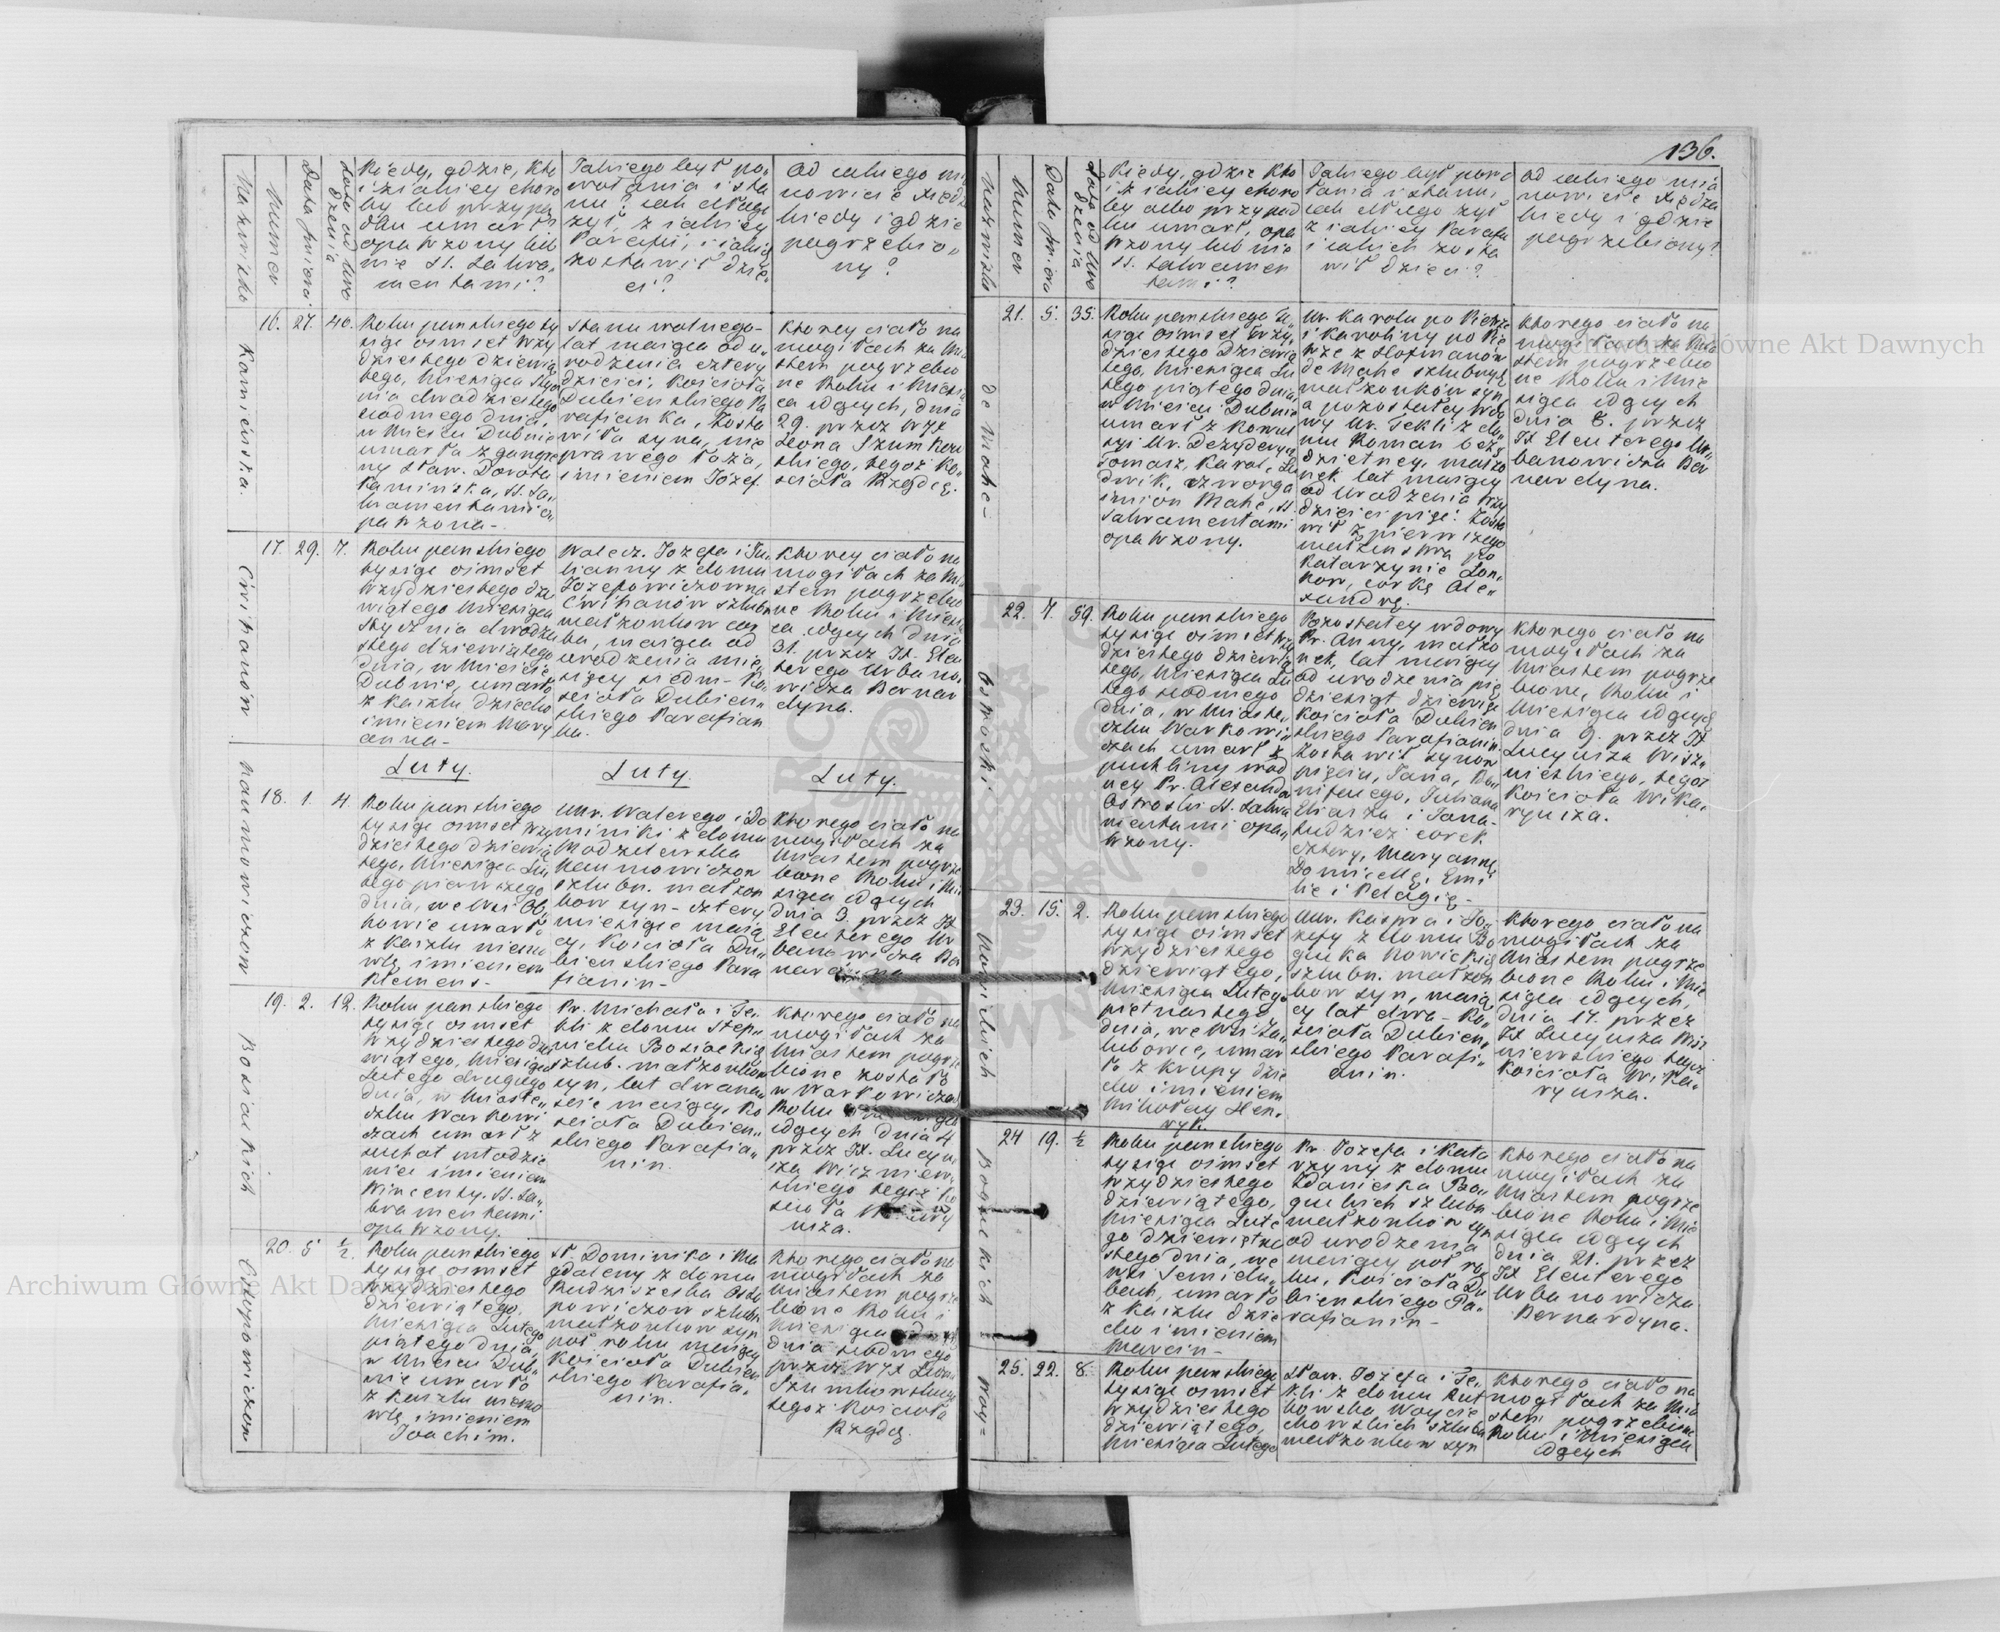 136.
Nazwisko
Numer
Data śmierci
Lata od uro
dzenia
Kiedy, gdzie, kto
i z iakiey choro
by lub przypa,
dku umarł?
opatrzony lub
nie SS. Sakra,
mentami?
Jakiego był po,,
wołania i sta
nu? iak długo
żył, z iakiey
Parafii, i iakie
zostawił dzie,,
ci?
Od iakiego mia
nowicie Xiędza
kiedy i gdzie
pogrzebio,,
ny?
16. 27. 40.
Kamieńska.
Roku panskiego ty
siąc osmset trzy
dziestego dziewią
tego, Miesiąca Stycz
nia dwudziestego
siodmego dnia,
w Miescie Dubnie
umarła z gangre
ny Sław. Dorota
Kaminska, SS. Sa,,
kramentami o,
patrzona -.
Stanu wolnego -
lat maiąca od u,,
rodzenia cztery
dzieści, Kościoła
Dubienskiego Pa
rafianka, Zosta
wiła syna, nie
prawego łoża,
imieniem Jozef.
Ktorey ciało na
mogiłach za Mia
stem pogrzebio
ne Roku i Miesią
ca idących, dnia
29. przez WJX
Leona Szumkow
skiego, tegoż Ko,,
ścioła Rządcę.
17. 29. 7.
Ćwikanów
Roku panskiego
tysiąc osmset
trzydziestego dzie
wiątego Miesiąca
Stycznia dwudzie
stego dziewiątego
dnia, w Miescie
Dubnie, umarło
z kaszlu dziecko
imieniem Mary
anna -
Walecz. Jozefa i Ju
lianny z domu
Jozefowiczowna
Ćwikanów szlubn
małżonkow cor
ka, maiąca od
urodzenia mie,
sięcy siedm - Ko,
scioła Dubien,,
skiego Parafian
ka.
Ktorey ciało na
mogiłach za Mia
stem pogrzebio
ne Roku i Miesią
ca idących dnia
31. przez JX. Eleu
terego Urbano,
wicza Bernar
dyna.
Luty.
Luty.
Luty.
18. 1. 4.
Naumowiczow
Roku panskiego
tysiąc osmset trzy
dziestego dziewią
tego, Miesiąca Lu,
tego pierwszego
dnia, we Wsi
umarło
z kaszlu niemo
wlę imieniem
Klemens -
Ur. Walerego i Do
miniki z domu
Modzelewska
Naumowiczow
szlubn. małżon
kow syn - cztery
miesiące maią
cy, Kościoła Du,,
bienskiego Para
fianin -
Ktorego ciało na
mogiłach za
Miastem pogrze
bione Roku i Mie
siąca idących
dnia 3. przez JX
Eleuterego Ur
banowicza Ber
nardyna
19. 2. 12.
Bosiackich
Roku panskiego
tysiąc osmset
trzydziestego dzie
wiątego, Miesiąca
Lutego drugiego
dnia, w Miaste,,
czku Warkowi
czach umarł z
suchot młodzie
niec imieniem
Wincenty. SS. Sa,,
kramentami
opatrzony.
Pr. Michała i Te,
kli z domu Step,,
nicka Bosiackich
szlub. małżonkow
syn, lat dwana,,
ście maiący, Ko
ścioła Dubien,,
skiego Parafia,,
nin.
Ktorego ciało na
mogiłach za
Miastem pogrze
bione zostało
w Warkowiczach
Roku
idących dnia 4
przez JX. Lucyu
sza Wiszniew,
skiego tegoż Ko
scioła Wikary
usza.
20. 5 ½.
Ostapowiczow
Roku panskiego
tysiąc osmset
trzydziestego
dziewiątego,
Miesiąca Lutego
piątego dnia,
w Miescie Dub,,
nie umarło
z kaszlu niemo
wlę imieniem
Joachim.
Sł. Dominika i Ma
gdaleny z domu
Rudziszeska Osta
powiczow szlubn
małżonkow syn
poł roku maiący
Kościoła Dubien
skiego Parafia,
nin.
Ktorego ciało na
mogiłach za
Miastem pogrze
bione Roku i
Miesiąca idących
dnia siodmego
przez WJX Leona
Szumkowskiego
tegoż Kościoła
Rządcę.
Nazwisko
Numer
Data śmierci
Lata od uro
dzenia
Kiedy, gdzie kto
i z iakiey choro
by albo przypad
ku umarł, opa
trzony lub nie
SS. Sakramen
tami?
Jakiego był powo
łania i stanu,
iak długo żył
z iakiey Parafii
i iakich zosta
wił dzieci?
Od iakiego mia
nowicie Xiędza
kiedy i gdzie
pogrzebiony?
21. 5. 35.
de Mahe -
Roku panskiego ty,,
siąc osmset trzy,
dziestego dziewią
tego, Miesiąca Lu
tego piątego dnia
w Miescie Dubnie
umarł z konwul
syi Ur. Dezydery,
Tomasz, Karol, Lu
dwik, czworga
imion Mahe, SS.
Sakramentami
opatrzony.
Ur. Karola po Pietrze
i Karoliny po Pie
trze z Hofmanow
de Mahe szlubnych
małżonków syn,
a pozostałey Wdo
wy Ur. Tekli z do,,
mu Roman bez,
dzietney, małżo
nek lat maiący
od urodzenia trzy
dzieści pięć: Zosta
wił z pierwszego
małżenstwa po
Katarzynie Lon,,
kow, corkę Ale,,
xandrę.
Ktorego ciało na
mogiłach za Mia
stem pogrzebio
ne Roku i Mie
siąca idących
dnia 8. przez
JX Eleuterego Ur,,
banowicza Ber
nardyna.
22. 7. 59.
Ostroski
Roku panskiego
tysiąc osmset trzy
dziestego dziewią
tego, Miesiąca Lu
tego siodmego
dnia, w Miaste,,
czku Warkowi,,
czach umarł z
puchliny wod
ney Pr. Alexander
Ostroski SS. Sakra
mentami opa,,
trzony.
Pozostałey wdowy
Pr. Anny, małżo
nek, lat maiący
od urodzenia pię
dziesiąt dziewięć
Kościoła Dubien
skiego Parafianin.
Zostawił synow
pięciu, Jana,
Juliana
Eliasza i Jana -
tudzież corek
cztery, Maryannę
Domicellę, Emi
lię i Pelagię -
Ktorego ciało na
mogiłach za
Miastem pogrze
bione, Roku i
Miesiąca idących
dnia 9. przez JX
Lucyusza Wisz,,
niewskiego, tegoż
Kościoła Wika,,
ryusza.
23. 15. 2.
Nowickich
Roku panskiego
tysiąc osmset
trzydziestego
dziewiątego,
Miesiąca Lutego
piętnastego
dnia, we Wsi Za,,
lubowie, umar
ło z krupy dzie
cko imieniem
Mikołay Hen,,
ryk.
Ur. Kaspra i Jo,,
zefy z domu Bo
gucka Nowickich
szlubn. małżon
kow syn, maią
cy lat dwa - Ko,,
scioła Dubien,,
skiego Parafi,,
anin.
Ktorego ciało na
mogiłach za
Miastem pogrze
bione Roku i Mie
siąca idących,
dnia 17. przez
JX Lucyusza Wisz
niewskiego tegoż
Kościoła Wika,,
ryusza.
24 19. ½
Boguckich
Roku panskiego
tysiąc osmset
trzydziestego
dziewiątego,
Miesiąca Lute
go dziewiętna
stego dnia, we
Wsi Semidu,,
bach, umarło
z kaszlu dzie
cko imieniem
Marcin -
Pr. Jozefa i Kata
rzyny z domu
Zdanieska Bo,,
guckich szlubn
małżonkow syn
od urodzenia
maiący poł ro,
ku, Kościoła Du
bienskiego Pa,,
rafianin -
Ktorego ciało na
mogiłach za
Miastem pogrze
bione Roku i Mie
siąca idących
dnia 21. przez
JX Eleuterego
Urbanowicza
Bernardyna.
25. 22. 8.
Woy=
Roku panskiego
tysiąc osmset
trzydziestego
dziewiątego,
Miesiąca Lutego
Sław. Jozefa i Te,,
kli z domu Rut
kowska Woycie
chowskich szlubn
małżonkow syn
Ktorego ciało na
mogiłach za Mia
stem pogrzebione
Roku i Miesiąca
idących
Archiwum Główne Akt Dawnych
Archiwum Główne Akt Dawnych